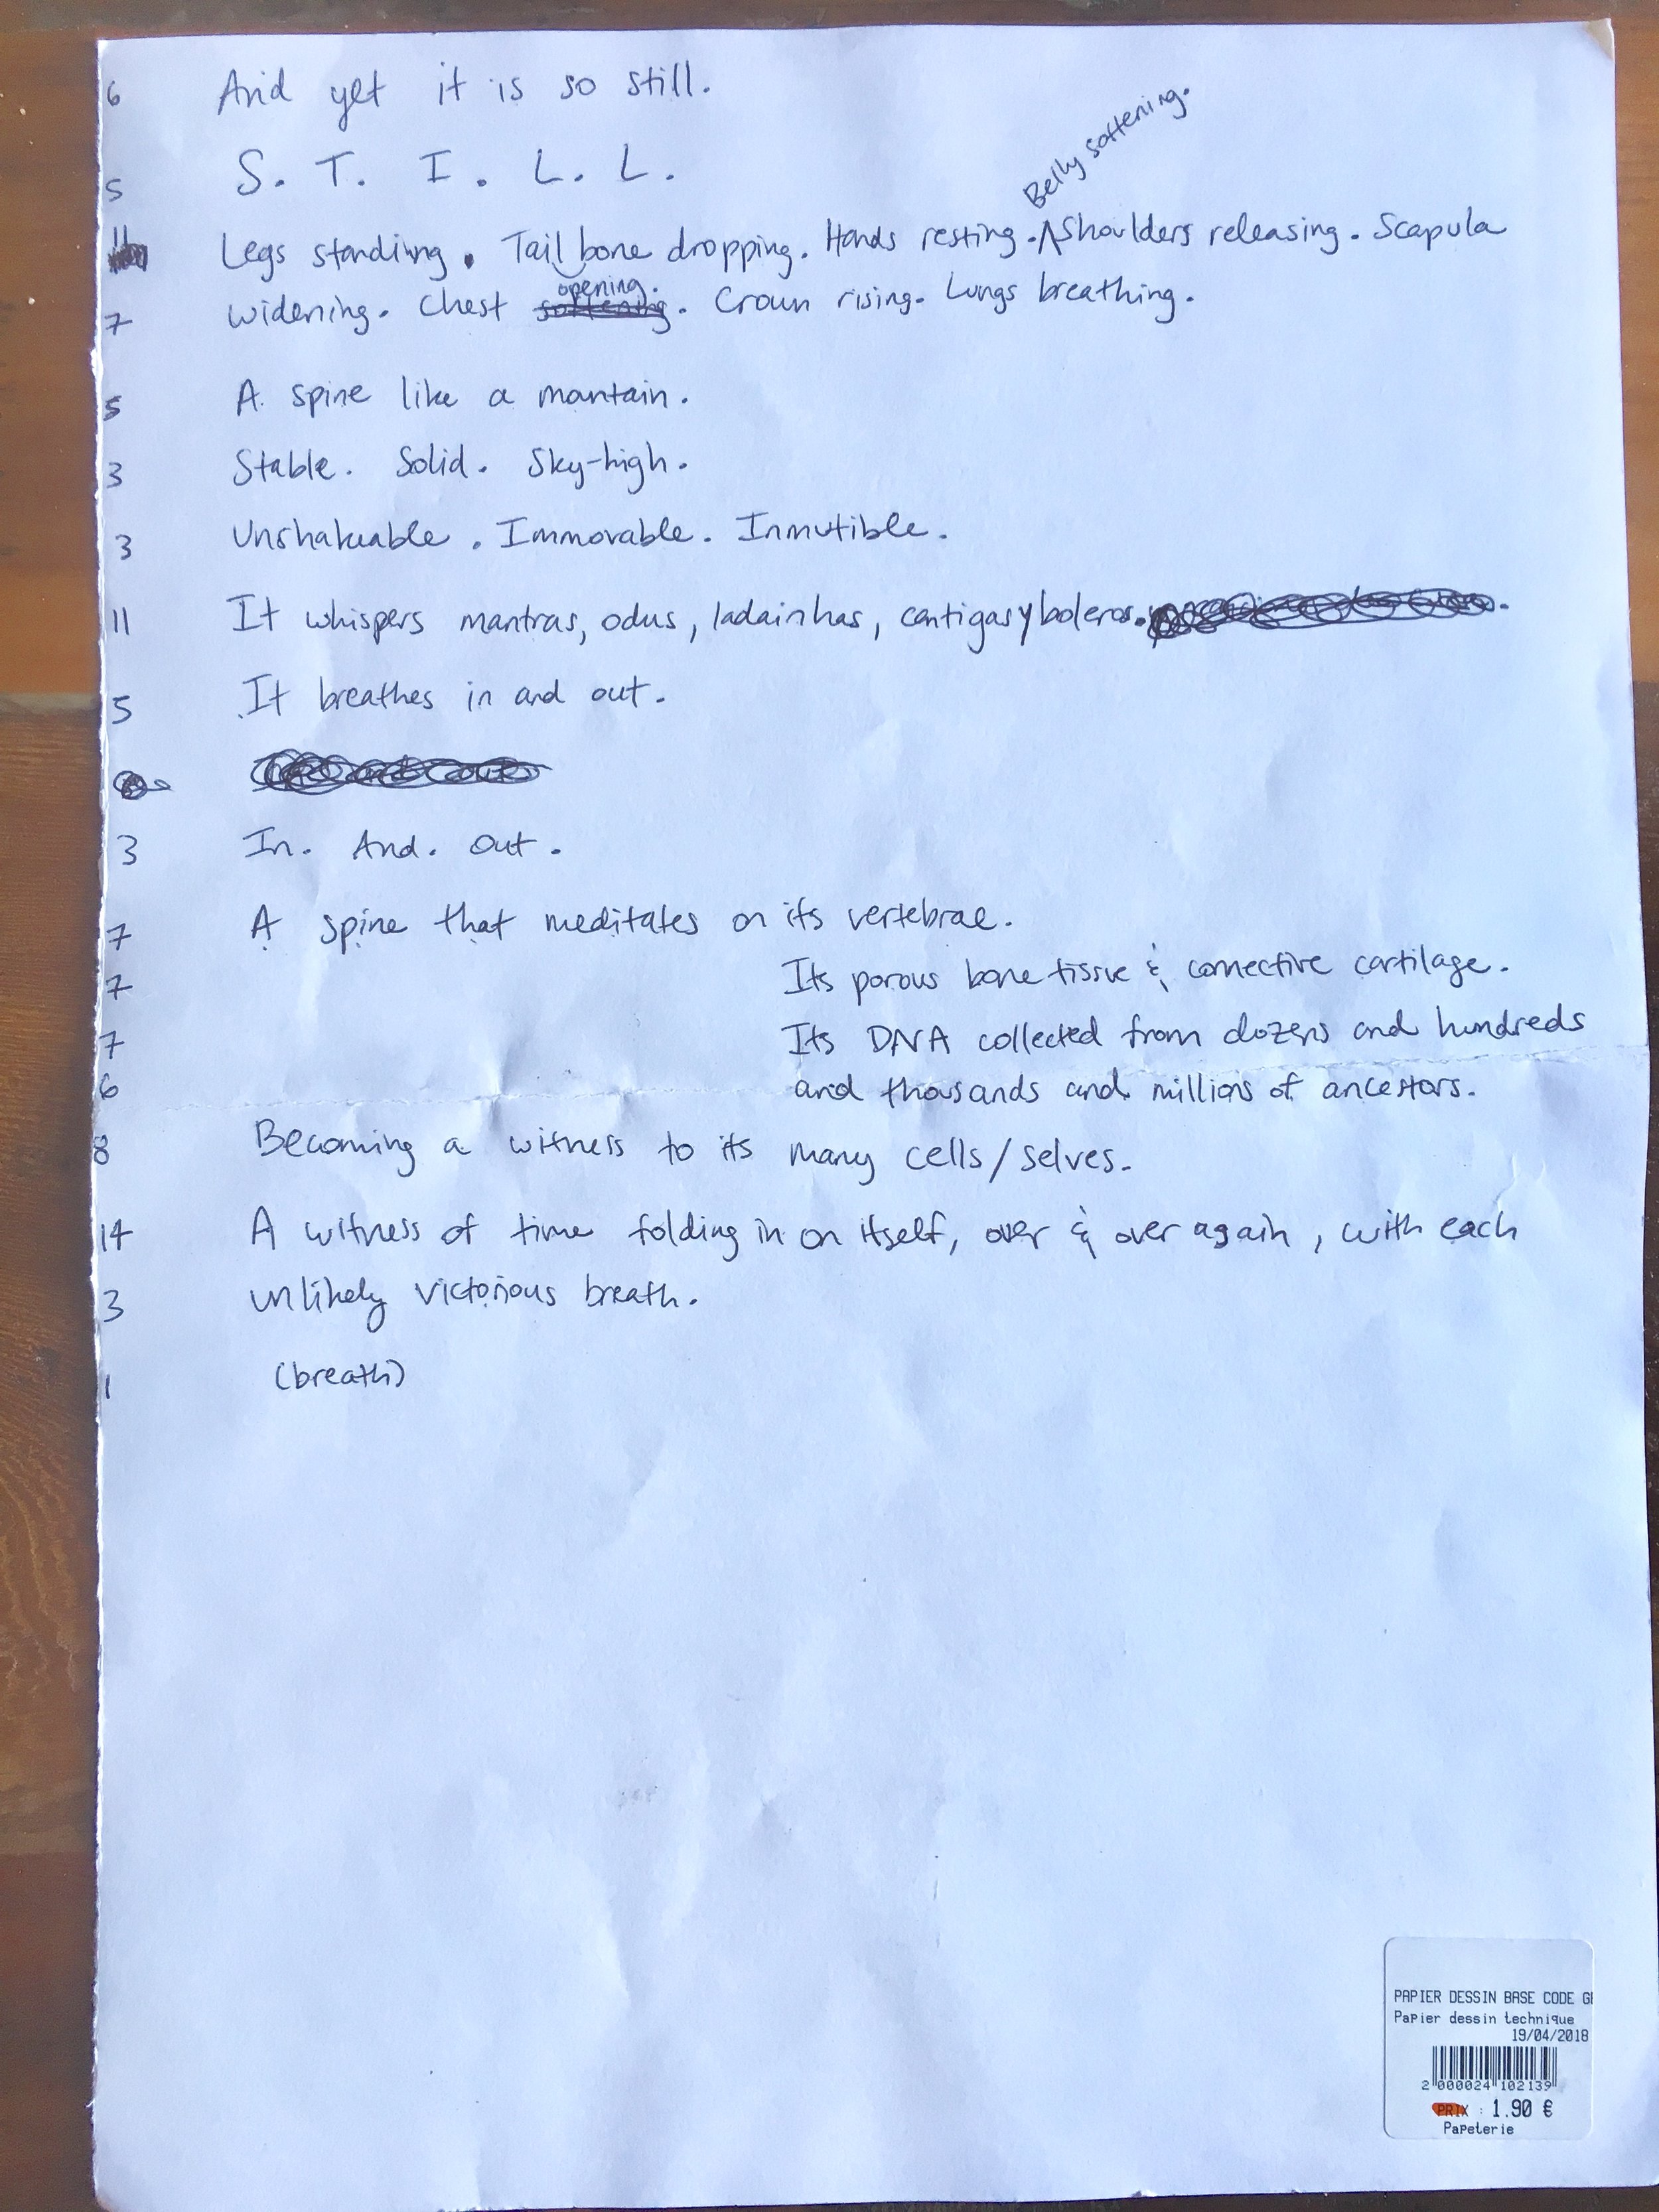 6 And yet it is so still.
5 S. T. I. L. L.
Belly softening.
11 Legs standing. Tailbone dropping. Hands resting. ^Shoulders releasing. Scapula
opening.
7 widening. Chest softening. Crown rising. Lungs breathing.
5 A spine like a mantain.
3 Stable. Solid. Sky-high.
3 Unshakeable. Immovable. Inmutible.
11 It whispers mantras, odus, ladainhas, cantigas y boleros.
5 It breathes in and out.
3 In. And. Out.
7 A spine that meditates on its vertebrae.
7 Its porous bone tissue & connective cartilage.
7 Its DNA collected from dozens and hundreds
6 and thousands and millions of ancestors.
8 Becoming a witness to its many cells/selves.
14 A witness of time folding in on itself, over & over again, with each
3 unlikely victorious breath.
1 (breath)
PAPIER DESSIN BASE CODE GE
Papier dessin technique
19/04/2018
2 000024 102139
PRIX : 1.90 €
Papeterie